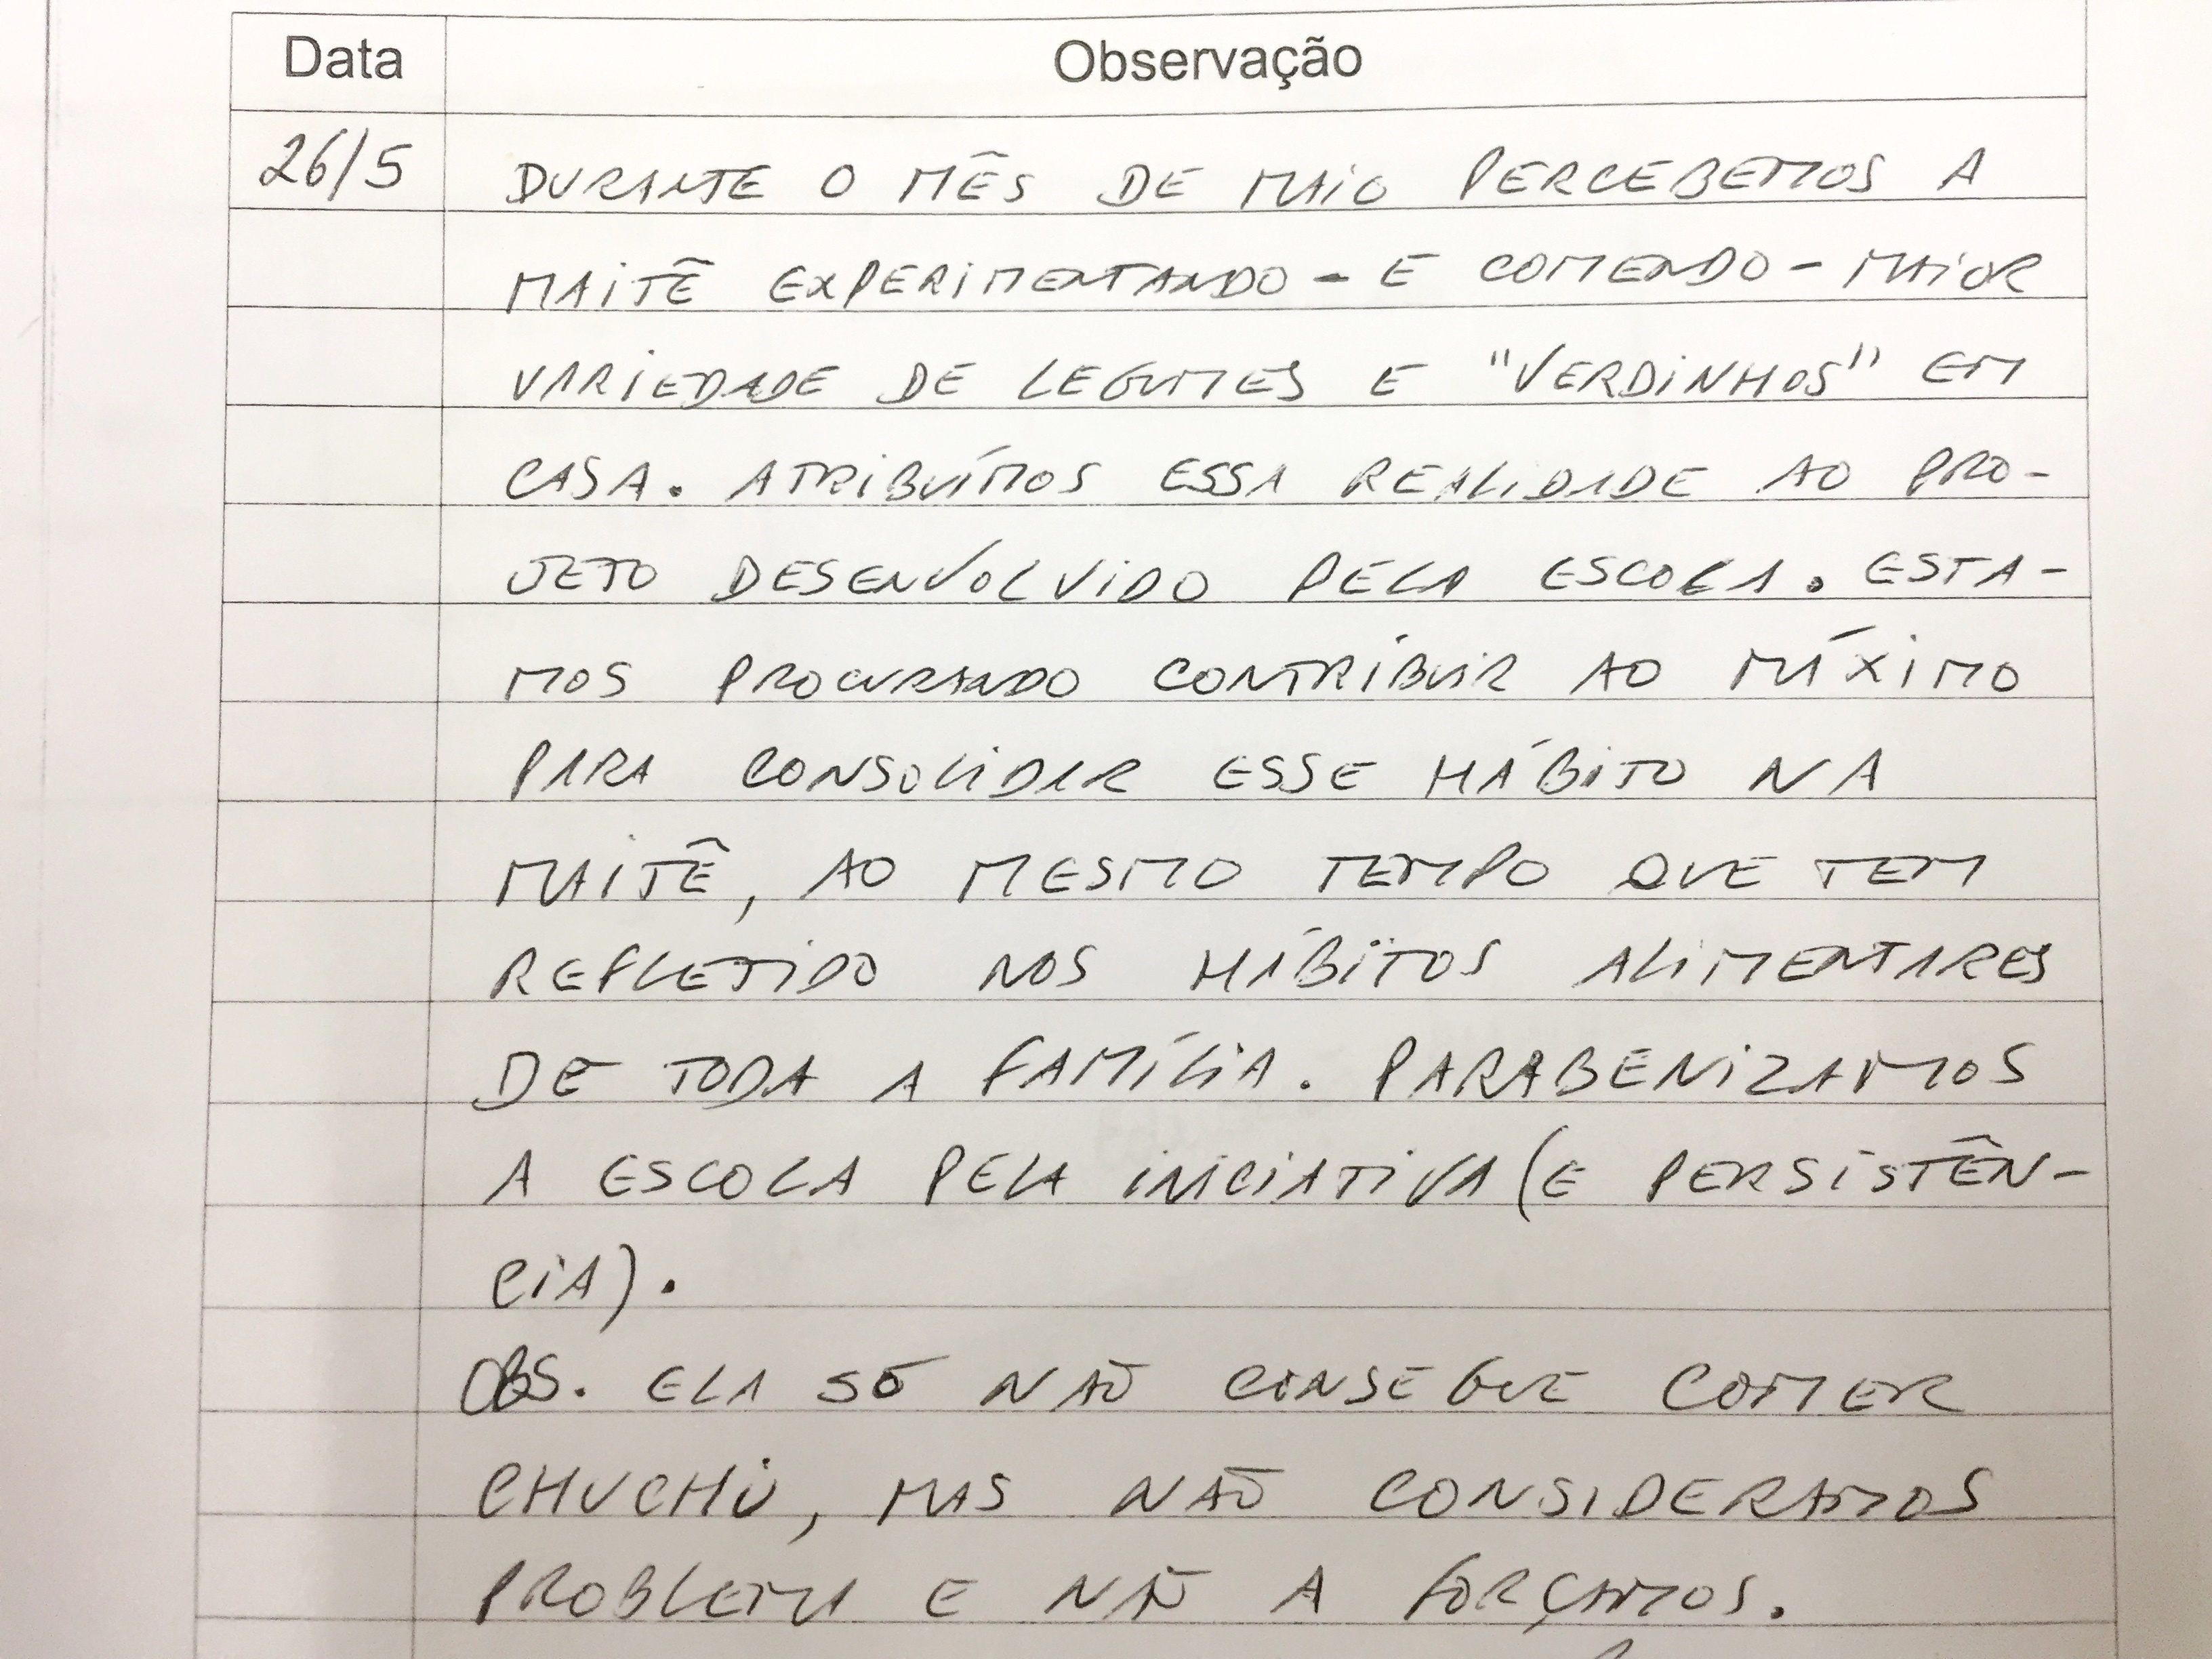 Data Observação
26/5 DURANTE O MÊS DE MAIO PERCEBEMOS A
MAITÊ EXPERIMENTANDO - E COMENDO - MAIOR
VARIEDADE DE LEGUMES E "VERDINHOS" EM
CASA. ATRIBUÍMOS ESSA REALIDADE AO PRO-
JETO DESENVOLVIDO PELA ESCOLA. ESTA-
MOS PROCURANDO CONTRIBUIR AO MÁXIMO
PARA CONSOLIDAR ESSE HÁBITO NA
MAITÊ, AO MESMO TEMPO QUE TEM
REFLETIDO NOS HÁBITOS ALIMENTARES
DE TODA A FAMÍLIA. PARABENIZAMOS
A ESCOLA PELA INICIATIVA (E PERSISTÊN-
CIA).
OBS. ELA SÓ NÃO CONSEGUE COMER
CHUCHU, MAS NÃO CONSIDERAMOS
PROBLEMA E NÃO A FORÇAMOS.